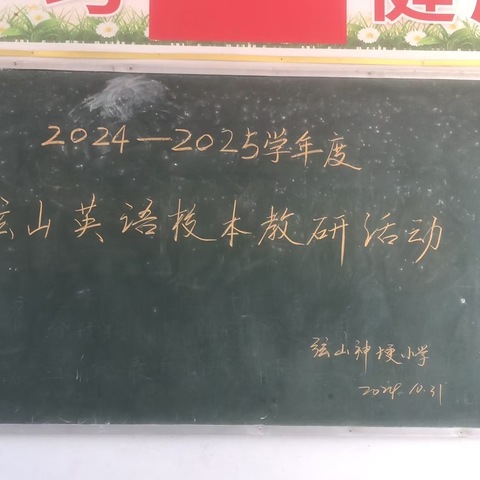 2024—2025学年度
弦山英语校本教研活动
弦山神埂小学
2024.10.31